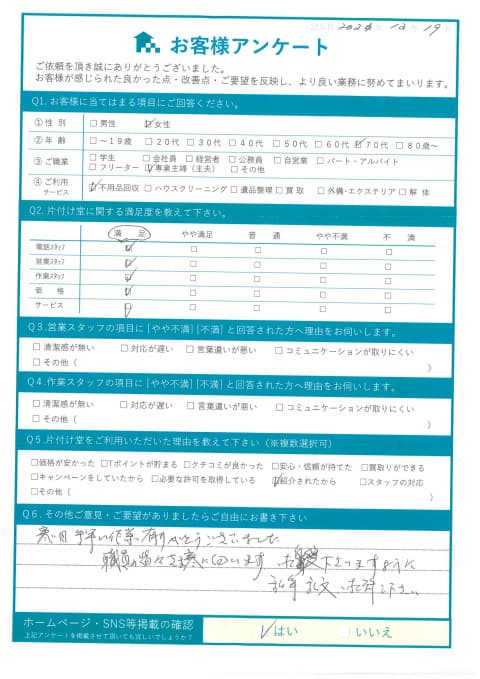 記入日 2024年 12月 19日
お客様アンケート
ご依頼を頂き誠にありがとうございました。
お客様が感じられた良かった点・改善点・ご要望を反映し、より良い業務に努めてまいります。
Q1. お客様に当てはまる項目にご回答ください。
①性 別 □男性 ☑女性
②年 齢 □～19歳 □20代 □30代 □40代 □50代 □60代 ☑70代 □80歳～
③ご職業 □学生 □会社員 □経営者 □公務員 □自営業 □パート・アルバイト
□フリーター ☑専業主婦（主夫） □その他
④ご利用サービス ☑不用品回収 □ハウスクリーニング □遺品整理 □買取 □外構・エクステリア □解体
Q2. 片付け堂に関する満足度を教えて下さい。
満 足 やや満足 普 通 やや不満 不 満
電話スタッフ ☑ □ □ □ □
営業スタッフ ☑ □ □ □ □
作業スタッフ ☑ □ □ □ □
価 格 ☑ □ □ □ □
サービス ☑ □ □ □ □
Q3.営業スタッフの項目に[やや不満][不満]と回答された方へ理由をお伺いします。
□清潔感が無い □対応が遅い □言葉遣いが悪い □コミュニケーションが取りにくい
□その他（ ）
Q4.作業スタッフの項目に[やや不満][不満]と回答された方へ理由をお伺いします。
□清潔感が無い □対応が遅い □言葉遣いが悪い □コミュニケーションが取りにくい
□その他（ ）
Q5.片付け堂をご利用いただいた理由を教えて下さい（※複数選択可）
□価格が安かった □Tポイントが貯まる □クチコミが良かった □安心・信頼が持てた □買取りができる
□キャンペーンをしていたから □必要な許可を取得している ☑紹介されたから □スタッフの対応
□その他（ ）
Q6. その他ご意見・ご要望がありましたらご自由にお書き下さい
寒い日 手早い作業 有りがとうございました
職員の皆々さま 下さいますように
乱筆 乱文 お許し下さい
ホームページ・SNS等掲載の確認 ☑はい □いいえ
上記アンケートを掲載させて頂いても宜しいでしょうか？